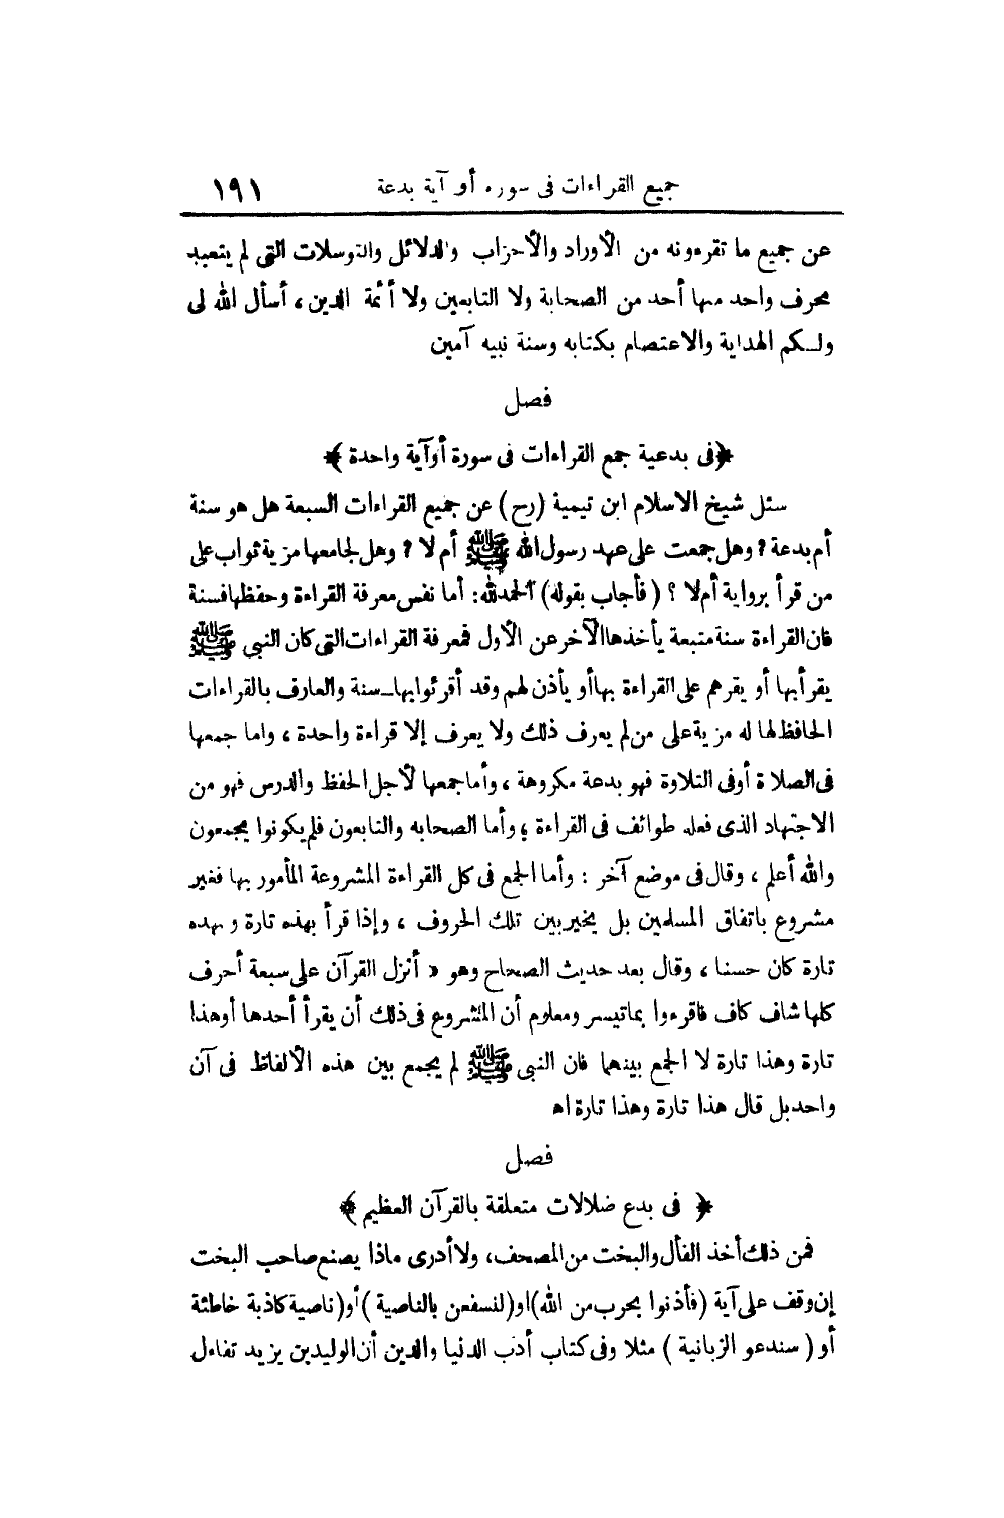 جميع القراءات فى سوره أو آية بدعة ١٩١
عن جميع ما تقرءونه من الأوراد والأحزاب والدلائل والتوسلات التى لم يتعبد
بحرف واحد منها أحد من الصحابة ولا التابعين ولا أئمة الدين ، أسأل الله لى
ولكم الهداية والاعتصام بكتابه وسنة نبيه آمين
فصل
﴿فى بدعية جمع القراءات فى سورة أوآية واحدة﴾
سئل شيخ الاسلام ابن تيمية (رح) عن جميع القراءات السبعة هل هو سنة
أم بدعة ؟ وهل جمعت على عهد رسول الله ﷺ أم لا ؟ وهل لجامعها مزية ثواب على
من قرأ برواية أم لا ؟ ( فأجاب بقوله ) الحمد لله : أما نفس معرفة القراءة وحفظها فسنة
فان القراءة سنة متبعة يأخذها الآخر عن الأول فمعرفة القراءات التى كان النبى ﷺ
يقرأ بها أو يقرهم على القراءة بها أو يأذن لهم وقد أقرئوا بها سنة والعارف بالقراءات
الحافظ لها له مزية على من لم يعرف ذلك ولا يعرف إلا قراءة واحدة ، واما جمعها
فى الصلاة أوفى التلاوة فهو بدعة مكروهة ، وأما جمعها لأجل الحفظ والدرس فهو من
الاجتهاد الذى فعله طوائف فى القراءة ؛ وأما الصحابه والتابعون فلم يكونوا يجمعون
والله أعلم ، وقال فى موضع آخر : وأما الجمع فى كل القراءة المشروعة المأمور بها فغير
مشروع باتفاق المسلمين بل يخير بين تلك الحروف ، وإذا قرأ بهذه تارة و بهده
تارة كان حسنا ، وقال بعد حديث الصحاح وهو « أنزل القرآن على سبعة أحرف
كلها شاف كاف فاقرءوا بماتيسر ومعلوم أن المشروع فى ذلك أن يقرأ أحدها أوهذا
تارة وهذا تارة لا الجمع بينهما فان النبى ﷺ لم يجمع بين هذه الألفاظ فى آن
واحد بل قال هذا تارة وهذا تارة اه
فصل
﴿ فى بدع ضلالات متعلقة بالقرآن العظيم ﴾
فمن ذلك أخذ الفأل والبخت من المصحف، ولا أدرى ماذا يصنع صاحب البخت
إن وقف على آية (فأذنوا بحرب من الله) او (لنسفعن بالناصية ) أو ( ناصية كاذبة خاطئة
أو ( سندعو الزبانية ) مثلا وفى كتاب أدب الدنيا والدين أن الوليد بن يزيد تفاءل